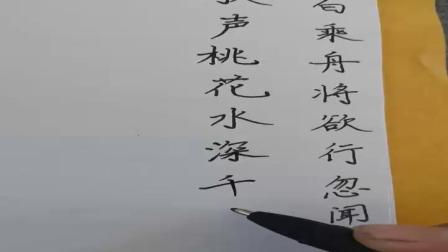 白乘舟将欲行忽闻
声桃花水深千